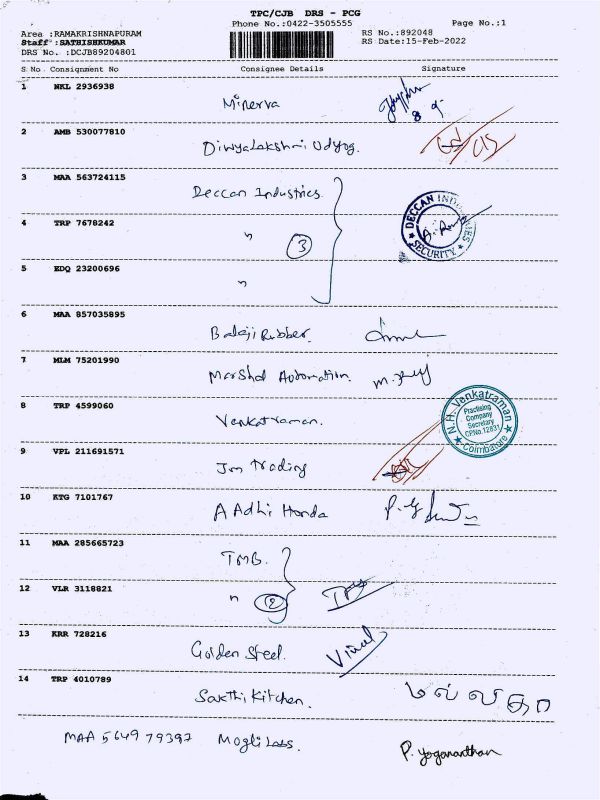 TPC/CJB DRS - PCG
Phone No.:0422-3505555 Page No.:1
Area :RAMAKRISHNAPURAM RS No.:892048
Staff :SATHISHKUMAR RS Date:15-Feb-2022
DRS No. :DCJB89204801
S No Consignment No Consignee Details Signature
1 NKL 2936938 Minerva
2 AMB 530077810 Divyalakshmi Udyog.
3 MAA 563724115 Deccan Industries.
DECCAN INDUSTRIES
SECURITY
4 TRP 7678242 " 3
5 EDQ 23200696 "
6 MAA 857035895 Balaji Rubber.
7 MLM 75201990 Marshal Automation.
8 TRP 4599060 Venkatraman.
N.H. Venkatraman
Practising
Company
Secretary
CP.No.12831
Coimbatore
9 VPL 211691571 Jm Trading
10 KTG 7101767 A Adhi Honda
11 MAA 285665723 TMB.
12 VLR 3118821 " 2
13 KRR 728216 Golden Steel.
14 TRP 4010789 Sakthi Kitchen. மல்லிகா
MAA 564979397 Mogli Labs. P. Yogananthan